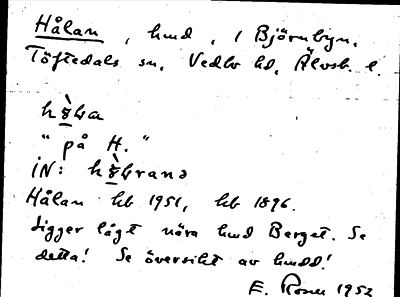 Hålan, hmd, i Björnbyn,
Töftedals sn, Vedbo hd, Älvsb l.
"på H."
iN:
Hålan kb 1951, kb 1896.
Ligger lågt nära hmd Berget. Se
detta! Se översikt av hmdd!
E. Rosén 1952